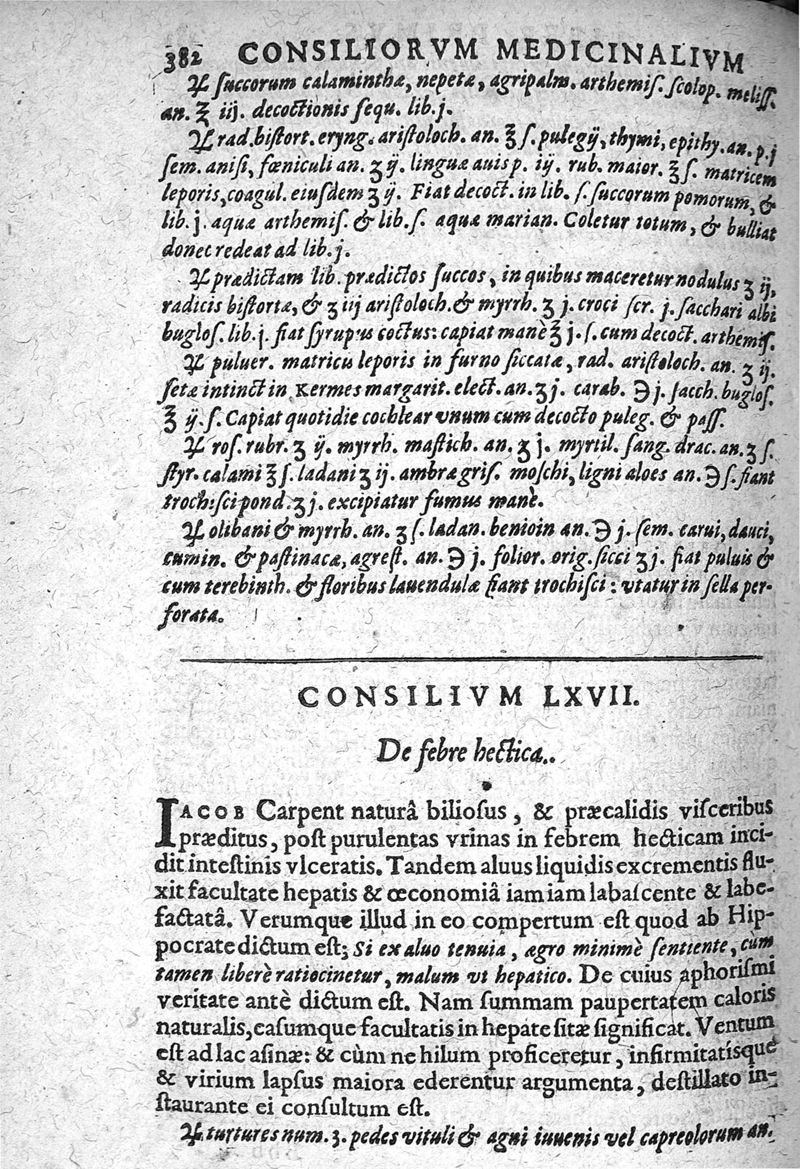 382 CONSILIORVM MEDICINALIVM
℞ ſuccorum calaminthæ, nepetæ, agripalm. arthemiſ. ſcolop. meliſſ.
an. ℥ iij. decoctionis ſequ. lib. j.
℞ rad. biſtort. eryng. ariſtoloch. an. ℥ ſ. pulegij, thymi, epithy. an. p. j
ſem. aniſi, fœniculi an. ʒ ij. linguæ auis p. iij. rub. maior. ℥ ſ. matricem
leporis, coagul. eiuſdem ʒ ij. Fiat decoct. in lib. ſ. ſuccorum pomorum, &
lib. j. aquæ arthemiſ. & lib. ſ. aquæ marian. Coletur totum, & bulliat
donec redeat ad lib. j.
℞ prædictam lib. prædictos ſuccos, in quibus maceretur nodulus ʒ ij,
radicis biſtortæ, & ʒ iij ariſtoloch. & myrrh. ʒ j. croci ſcr. j. ſacchari albi
bugloſ. lib. j. fiat ſyrupus coctus: capiat manè ℥ j. ſ. cum decoct. arthemiſ.
℞ puluer. matricis leporis in furno ſiccatæ, rad. ariſtoloch. an. ʒ ij.
ſetæ intinct in Kermes margarit. elect. an. ʒ j. carab. ℈ j. ſacch. bugloſ.
℥ ij. ſ. Capiat quotidie cochlear vnum cum decocto puleg. & paſſ.
℞ roſ. rubr. ʒ ij. myrrh. maſtich. an. ʒ j. myrtil. ſang. drac. an. ʒ ſ.
ſtyr. calami ℥ ſ. ladani ʒ ij. ambræ griſ. moſchi, ligni aloes an. ℈ ſ. fiant
trochiſci pond. ʒ j. excipiatur fumus manè.
℞ olibani & myrrh. an. ʒ ſ. ladan. benioin an. ℈ j. ſem. carui, dauci,
cumin. & paſtinacæ, agreſt. an. ℈ j. folior. orig. ſicci ʒ j. fiat puluis &
cum terebinth. & floribus lauendulæ fiant trochiſci: vtatur in ſella per-
forata.
CONSILIVM LXVII.
De febre hectica..
IACOB Carpent naturâ bilioſus, & præcalidis viſceribus
præditus, poſt purulentas vrinas in febrem hecticam inci-
dit inteſtinis vlceratis. Tandem aluus liquidis excrementis flu-
xit facultate hepatis & œconomiâ iamiam labaſcente & labe-
factatâ. Verumque illud in eo compertum eſt quod ab Hip-
pocrate dictum eſt; Si ex aluo tenuia, ægro minimè ſentiente, cùm
tamen liberè ratiocinetur, malum vt hepatico. De cuius aphoriſmi
veritate antè dictum eſt. Nam ſummam paupertatem caloris
naturalis, eaſumque facultatis in hepate ſitæ ſignificat. Ventum
eſt ad lac aſinæ: & cùm ne hilum proficeretur, infirmitatíſque
& virium lapſus maiora ederentur argumenta, deſtillato in-
ſtaurante ei conſultum eſt.
℞ turtures num. 3. pedes vituli & agni iuuenis vel capreolorum an.